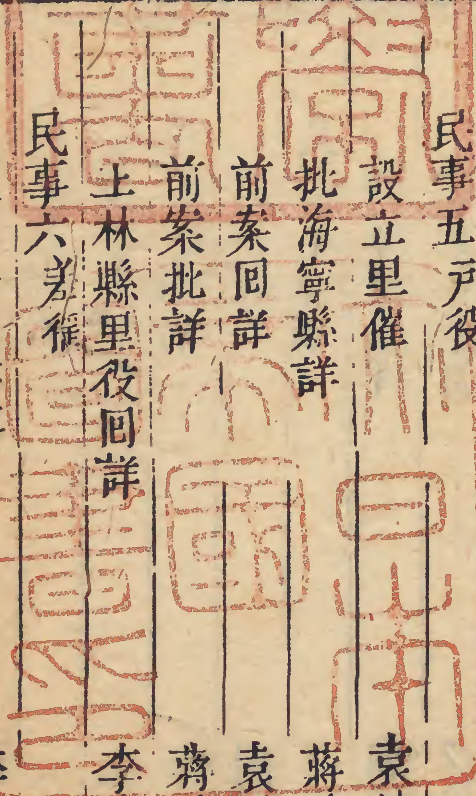 民事五戸役
設立里催 袁
批海寧縣詳 蔣
前案回詳 袁
前案批詳 蔣
上林縣里役回詳 李
民事六差徭